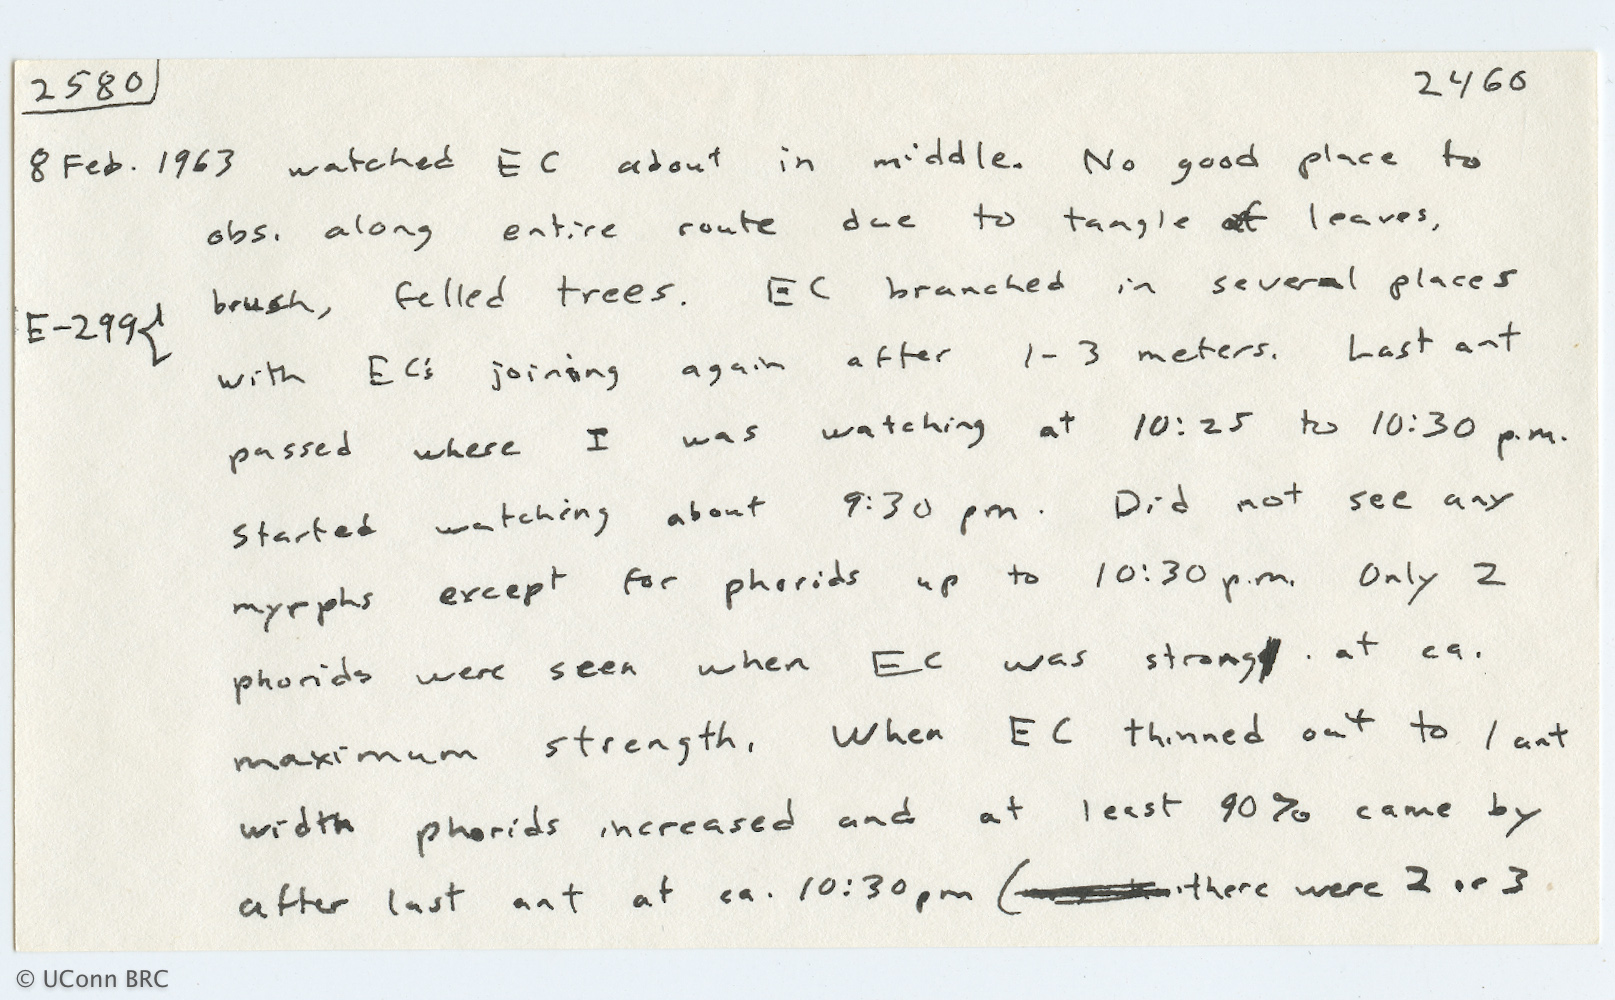 2580 2460
8 Feb. 1963 watched EC about in middle. No good place to
obs. along entire route due to tangle of leaves,
brush, felled trees. EC branched in several places
E-299 {
with EC's joining again after 1-3 meters. Last ant
passed where I was watching at 10:25 to 10:30 p.m.
Started watching about 9:30 pm. Did not see any
myrphs except for phorids up to 10:30 p.m. Only 2
phorids were seen when EC was strong. at ca.
maximum strength. When EC thinned out to 1 ant
width phorids increased and at least 90% came by
after last ant at ca. 10:30pm (there were 2 or 3
© UConn BRC